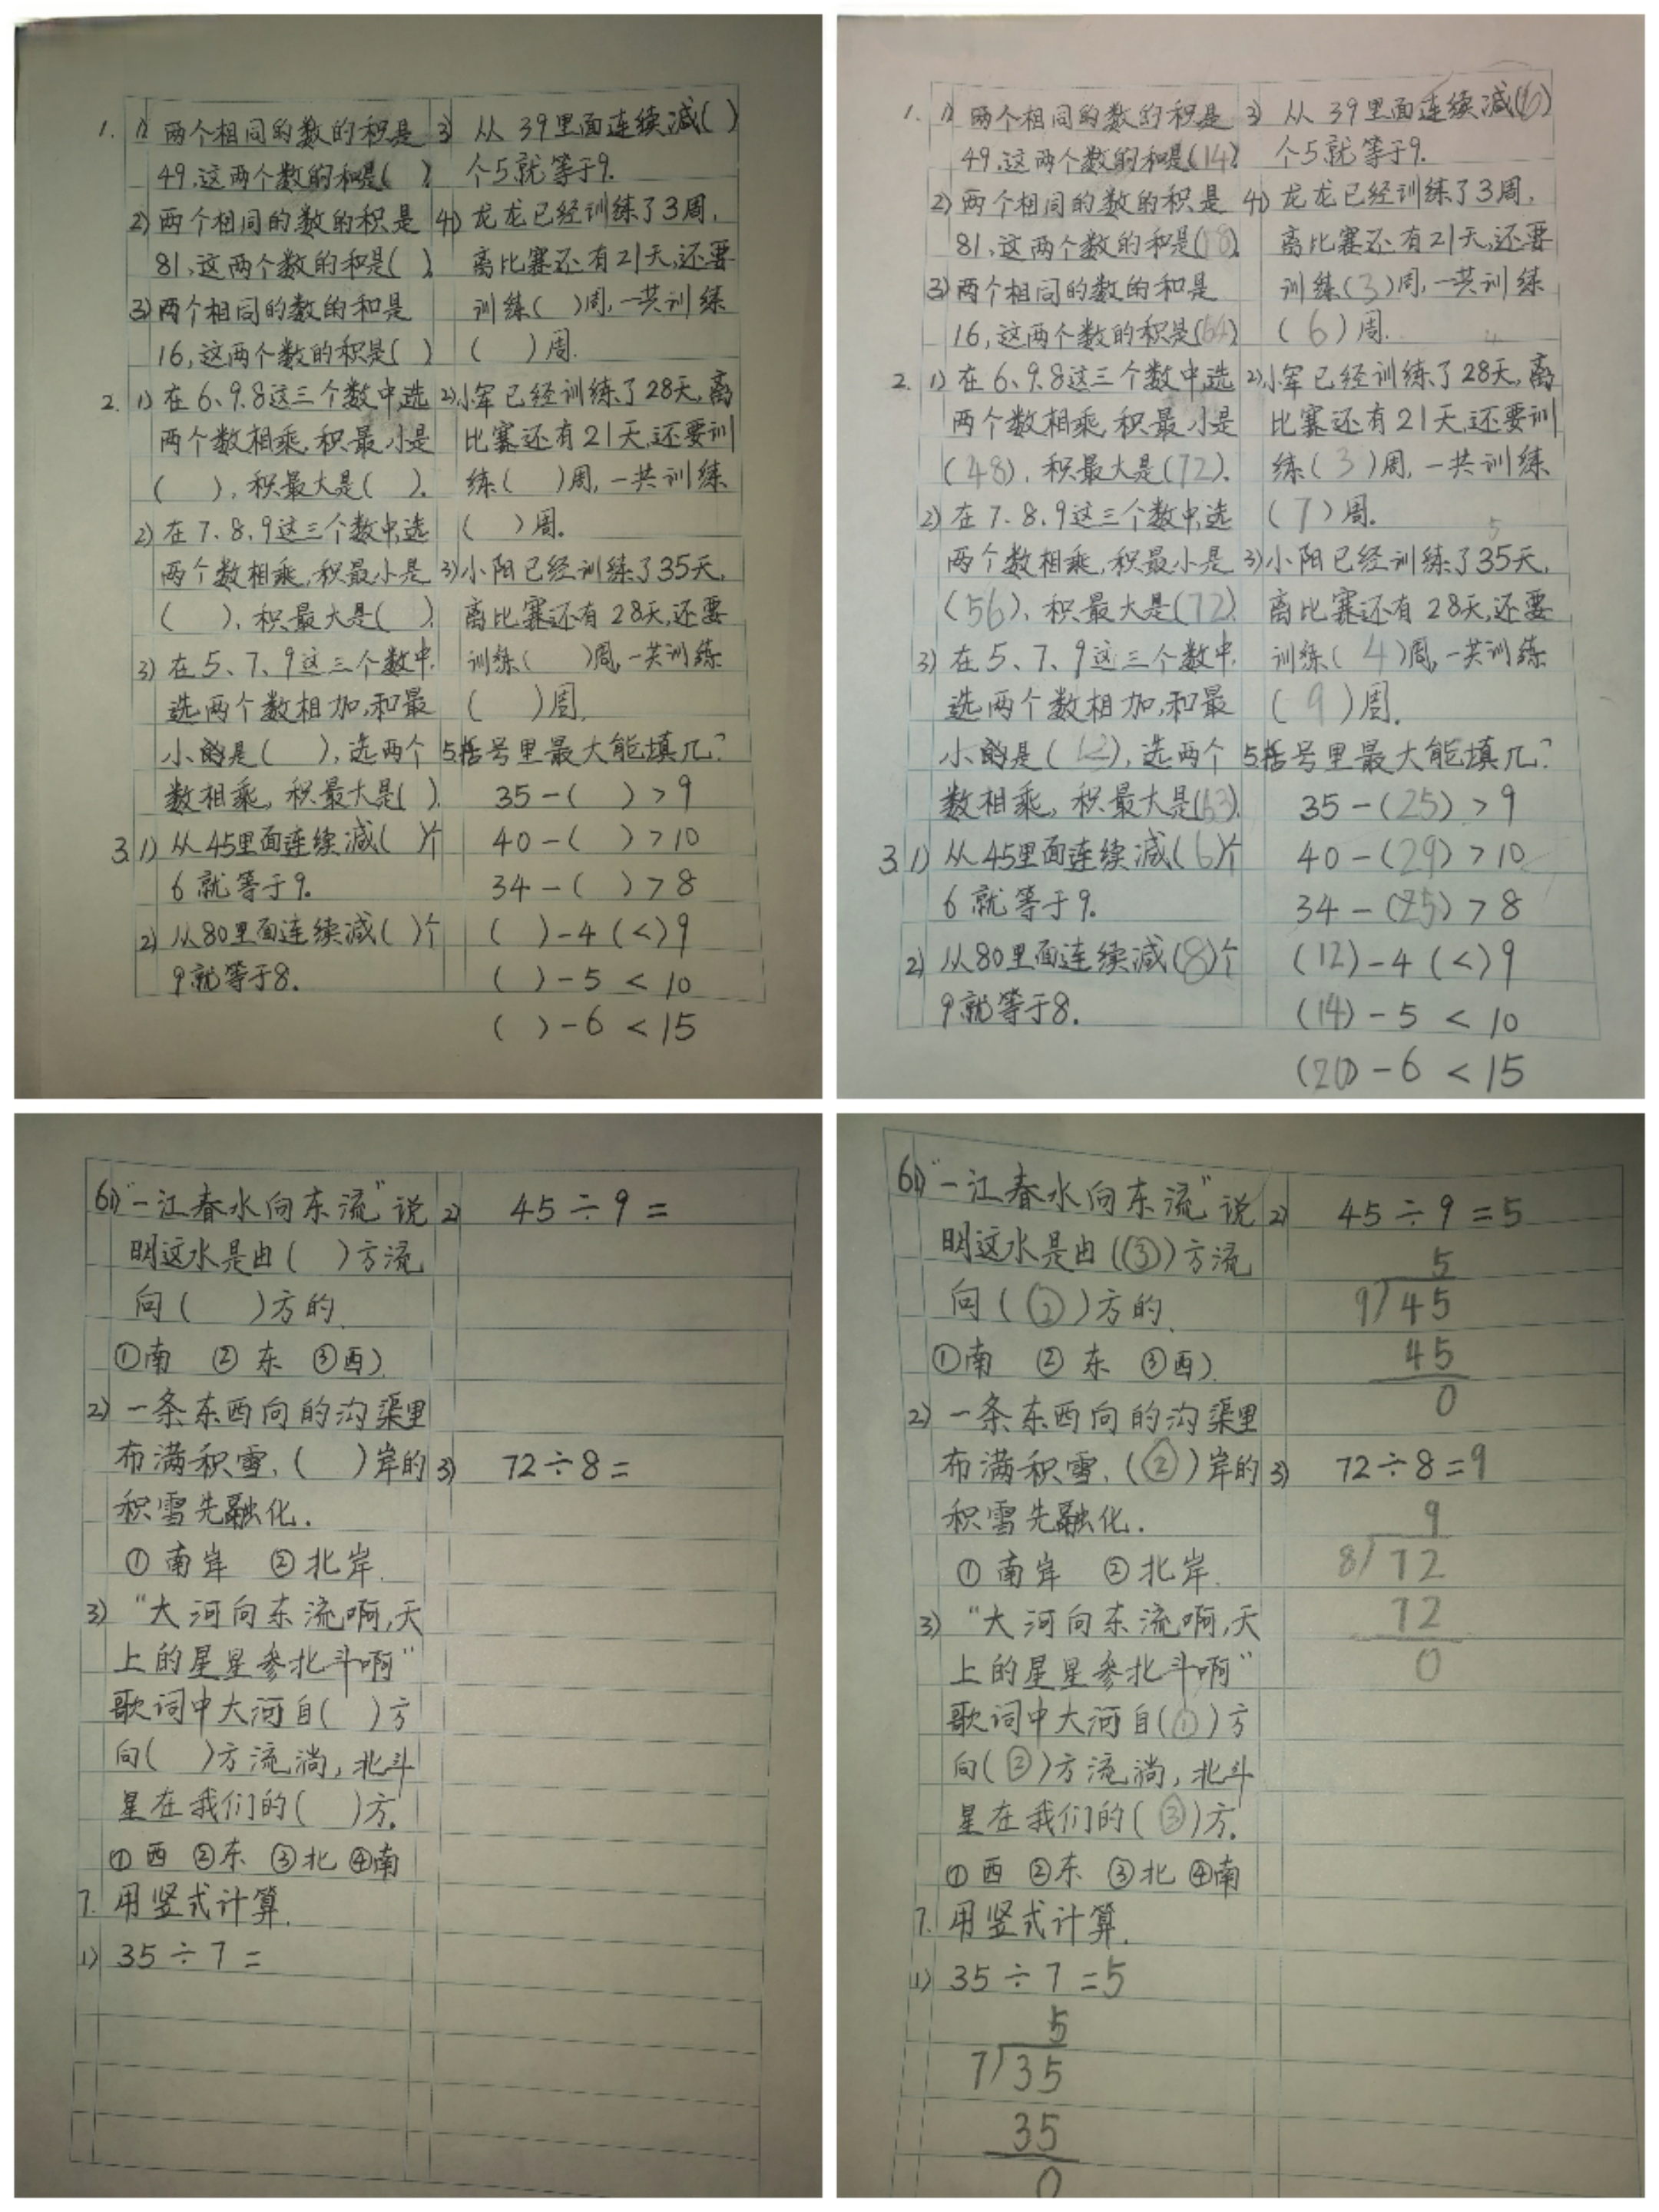 1. 1) 两个相同的数的积是
49,这两个数的和是( ).
2) 两个相同的数的积是
81,这两个数的和是( ).
3) 两个相同的数的和是
16,这两个数的积是( )
2. 1) 在6、9、8这三个数中,选
两个数相乘,积最小是
( ),积最大是( ).
2) 在7、8、9这三个数中,选
两个数相乘,积最小是
( ),积最大是( ).
3) 在5、7、9这三个数中,
选两个数相加,和最
小的是( ),选两个
数相乘,积最大是( ).
3. 1) 从45里面连续减( )个
6就等于9.
2) 从80里面连续减( )个
9就等于8.
3) 从39里面连续减( )
个5就等于9.
4. 1) 龙龙已经训练了3周,
离比赛还有21天,还要
训练( )周,一共训练
( )周.
2) 小军已经训练了28天,离
比赛还有21天,还要训
练( )周,一共训练
( )周.
3) 小阳已经训练了35天,
离比赛还有28天,还要
训练( )周,一共训练
( )周.
5.括号里最大能填几?
35-( )>9
40-( )>10
34-( )>8
( )-4(<)9
( )-5<10
( )-6<15
1. 1) 两个相同的数的积是
49,这两个数的和是(14).
2) 两个相同的数的积是
81,这两个数的和是(18).
3) 两个相同的数的和是
16,这两个数的积是(64)
2. 1) 在6、9、8这三个数中,选
两个数相乘,积最小是
(48),积最大是(72).
2) 在7、8、9这三个数中,选
两个数相乘,积最小是
(56),积最大是(72).
3) 在5、7、9这三个数中,
选两个数相加,和最
小的是(12),选两个
数相乘,积最大是(63).
3. 1) 从45里面连续减(6)个
6就等于9.
2) 从80里面连续减(8)个
9就等于8.
3) 从39里面连续减(6)
个5就等于9.
4. 1) 龙龙已经训练了3周,
离比赛还有21天,还要
训练(3)周,一共训练
(6)周.
4
2) 小军已经训练了28天,离
比赛还有21天,还要训
练(3)周,一共训练
(7)周.
5
3) 小阳已经训练了35天,
离比赛还有28天,还要
训练(4)周,一共训练
(9)周.
5.括号里最大能填几?
35-(25)>9
40-(29)>10
34-(25)>8
(12)-4(<)9
(14)-5<10
(20)-6<15
6. 1) “一江春水向东流”说
明这水是由( )方流
向( )方的.
①南 ②东 ③西).
2) 一条东西向的沟渠里
布满积雪,( )岸的
积雪先融化.
①南岸 ②北岸.
3) “大河向东流啊,天
上的星星参北斗啊”
歌词中大河自( )方
向( )方流淌,北斗
星在我们的( )方.
①西 ②东 ③北 ④南
7. 用竖式计算.
1) 35÷7=
2) 45÷9=
3) 72÷8=
6. 1) “一江春水向东流”说
明这水是由(③)方流
向(②)方的.
①南 ②东 ③西).
2) 一条东西向的沟渠里
布满积雪,(②)岸的
积雪先融化.
①南岸 ②北岸.
3) “大河向东流啊,天
上的星星参北斗啊”
歌词中大河自(①)方
向(②)方流淌,北斗
星在我们的(③)方.
①西 ②东 ③北 ④南
7. 用竖式计算.
1) 35÷7=5
5
7)35
35
0
2) 45÷9=5
5
9)45
45
0
3) 72÷8=9
9
8)72
72
0